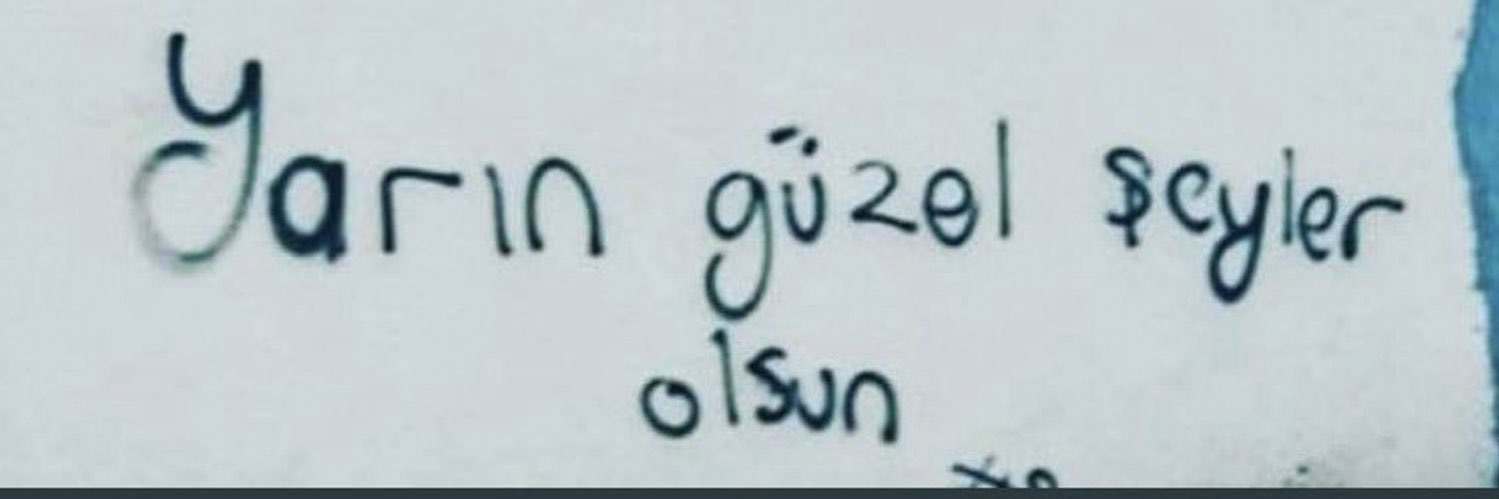 Yarın güzel şeyler
olsun